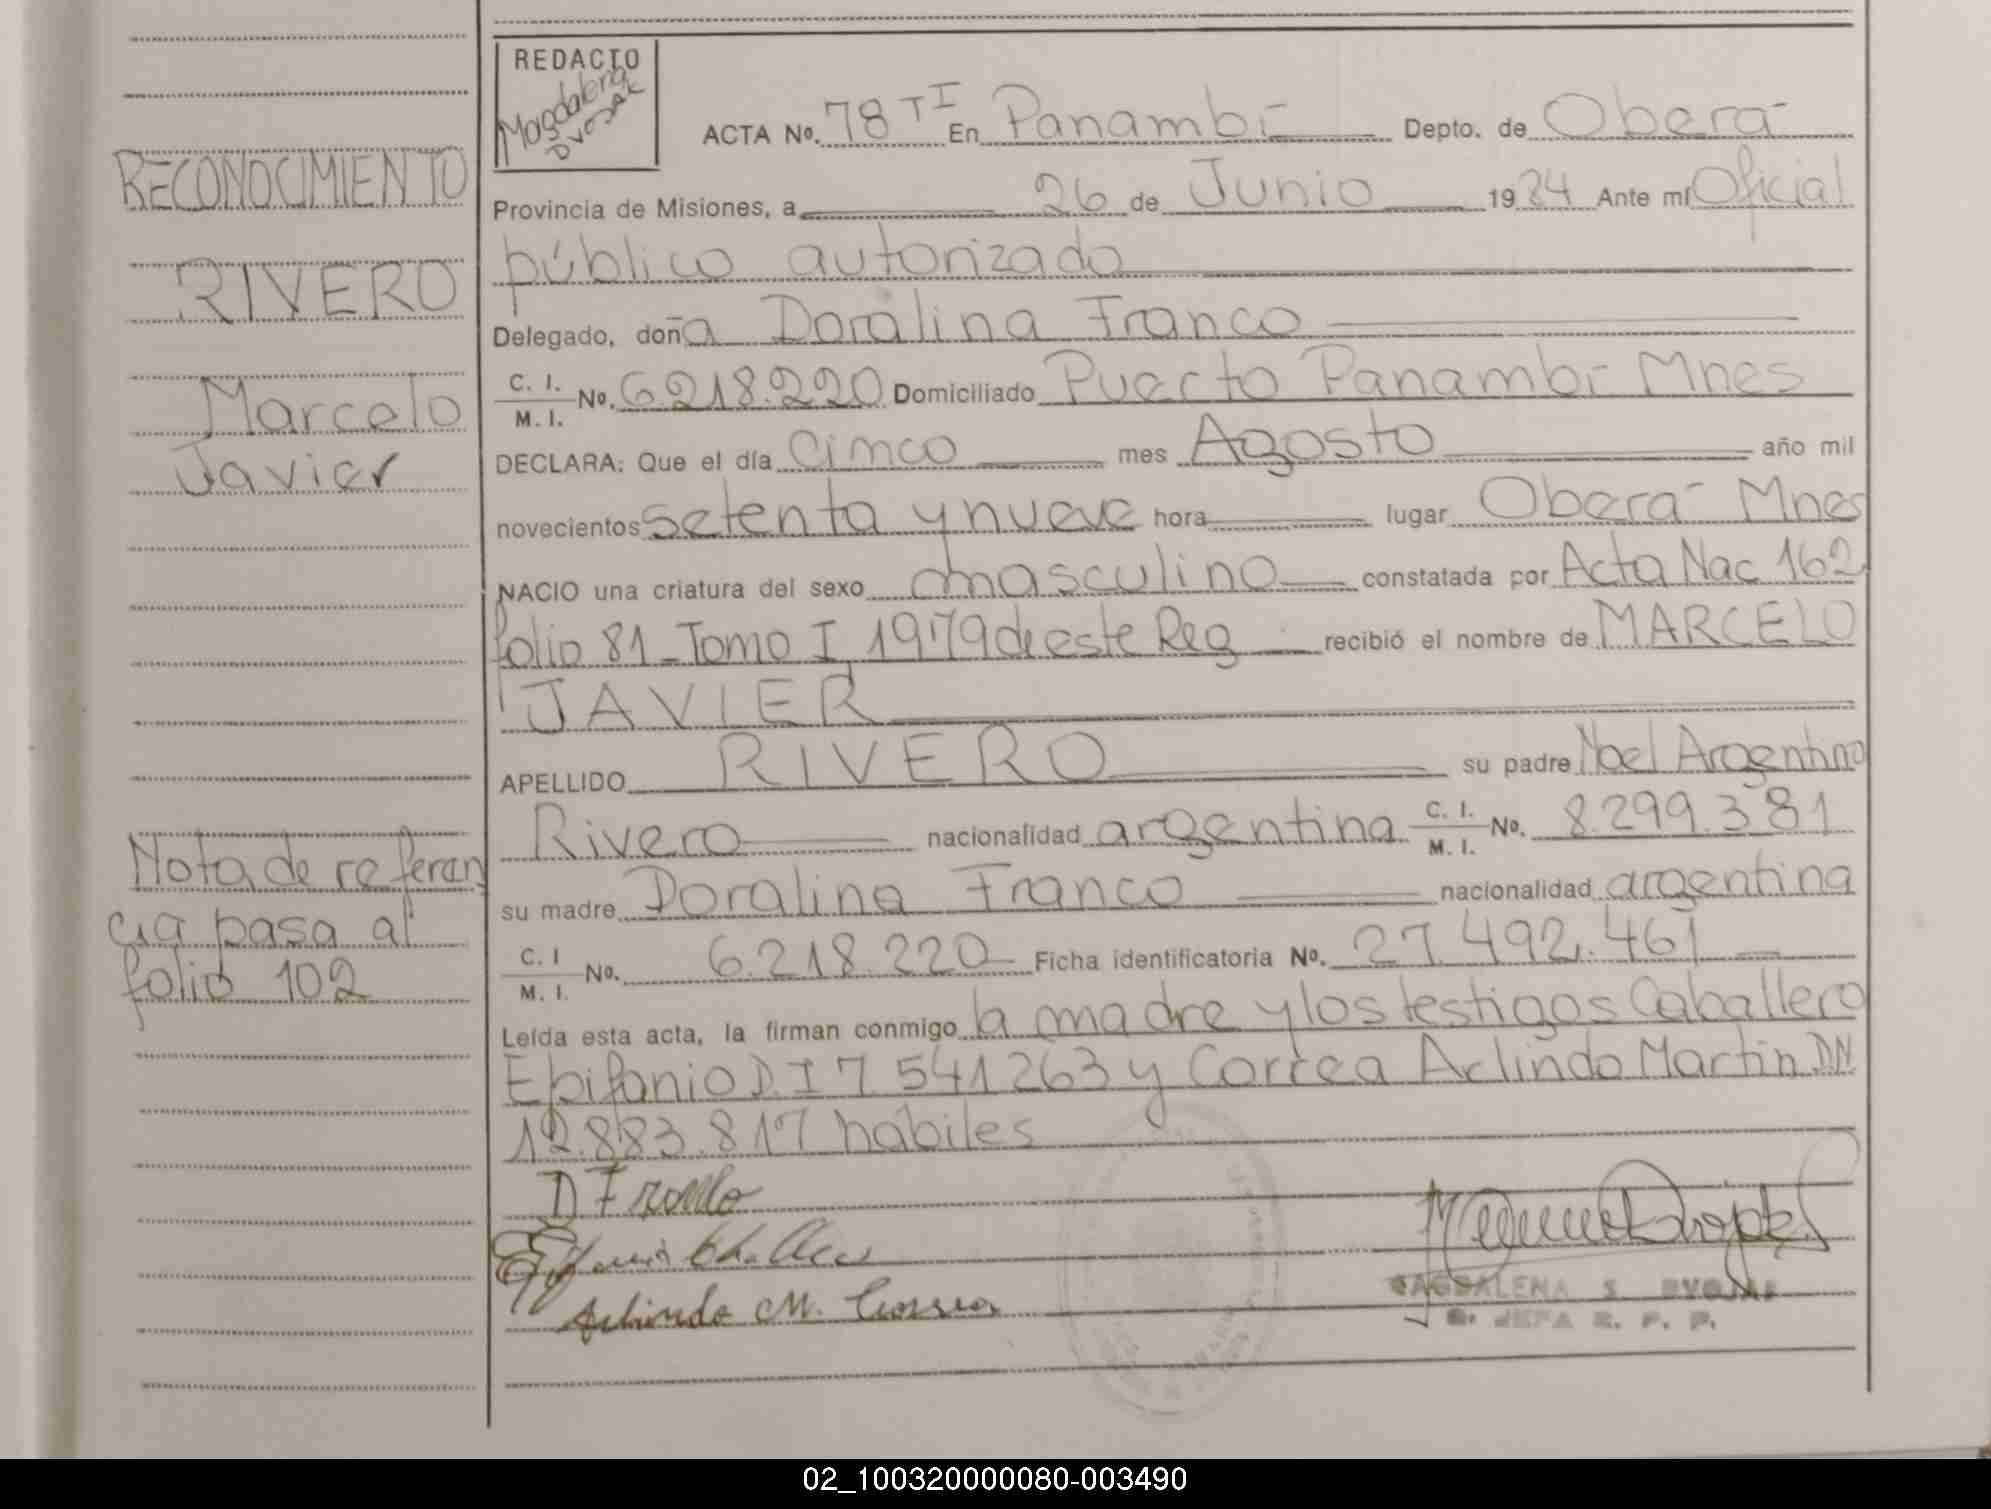 REDACTO
Magdalena
DVOJAK
ACTA Nº. 78 T I En Panambí Depto. de Oberá
RECONOCIMIENTO
Provincia de Misiones, a 26 de Junio 1984 Ante mí Oficial
público autorizado
RIVERO
Delegado, doña Doralina Franco
C. I.
M. I.
Nº. 6.218.220 Domiciliado Puerto Panambí Mnes
Marcelo
Javier
DECLARA: Que el día cinco mes Agosto año mil
novecientos setenta y nueve hora lugar Oberá Mnes
NACIO una criatura del sexo masculino constatada por Acta Nac 162
folio 81 - Tomo I 1979 de este Reg recibió el nombre de MARCELO
JAVIER
APELLIDO RIVERO su padre Noel Argentino
Rivero nacionalidad argentina C. I. / M. I. Nº. 8.299.381
Nota de referen
cia pasa al
folio 102
su madre Doralina Franco nacionalidad argentina
C. I
M. I.
Nº. 6.218.220 Ficha identificatoria Nº. 27.492.461
Leída esta acta, la firman conmigo la madre y los testigos Caballero
Epifanio D.I 7.541263 y Correa Arlindo Martin DNI
12.883.817 habiles
D Franco
Arlindo M. Correa
MAGDALENA S. DVOJAK
JEFA R. P. P.
02_100320000080-003490